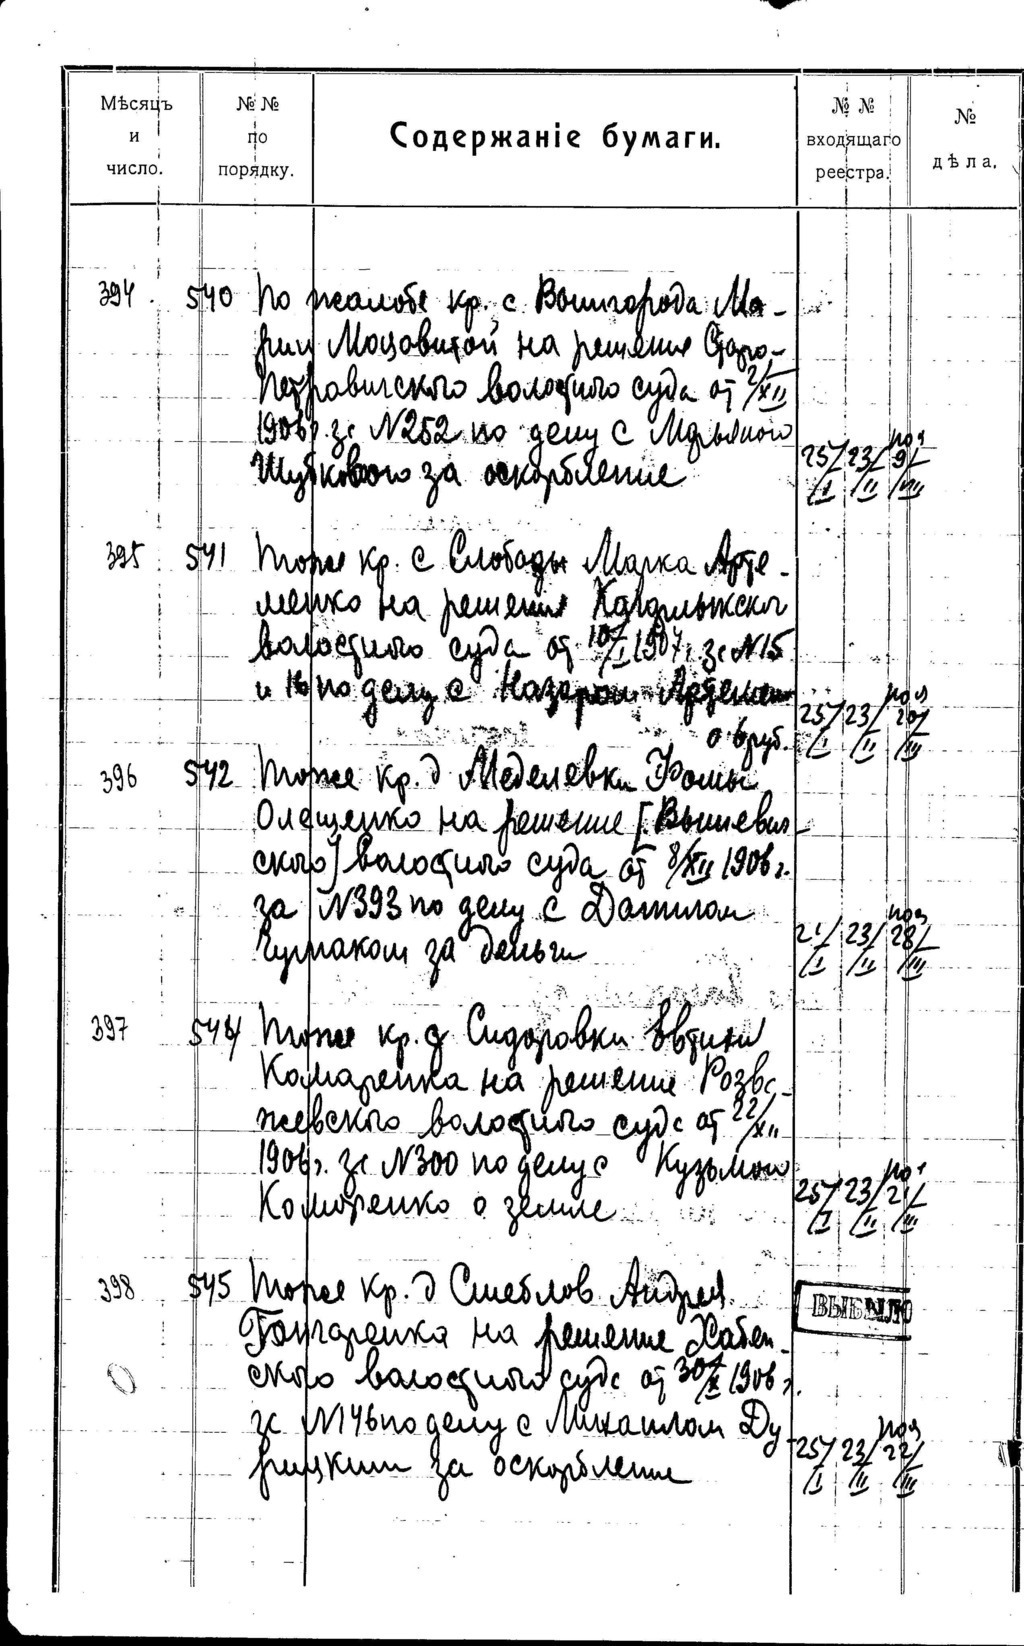 Мѣсяцъ и число.
№ № по порядку.
Содержаніе бумаги.
№ № входящаго реестра.
№ дѣла.
394 540 По жалобе кр. с Вышгорода Ма-
рии Моцовитой на решение Старо-
Петровичского волостного суда от 2/XII
1906г. за N252 по делу с Марьяною
Шубковою за оскорбление
25/I 23/II 9/VIII
395 541 Тоже кр. с Слободы Марка Арте-
менко на решение Кагарлыкског
волостного суда от 10/I 1907г. за N15
и 16 по делу с Назаром Артемен
о 6 руб.
25/I 23/II 20/III
396 542 Тоже кр. д Меделевки Фомы
Олещенко на решение [Вышевич-
ского] волостного суда от 8/XII 1906г.
за N393 по делу с Данилом
Чумаком за деньги
21/I 23/II 28/III
397 544 Тоже кр. д Сидоровки Евтихи
Комаренка на решение Розва-
жевского волостного суда от 22/XII
1906г. за N300 по делу с Кузьмою
Комаренко о земле
25/I 23/II 21/III
398 545 Тоже кр. д Стеблов Андрея
Гончаренка на решение Хабен-
ского волостного суда от 30/X 1906г.
за N146 по делу с Михаилом Ду-
рицким за оскорбление
ВЫБЫЛО
25/I 23/II 22/III